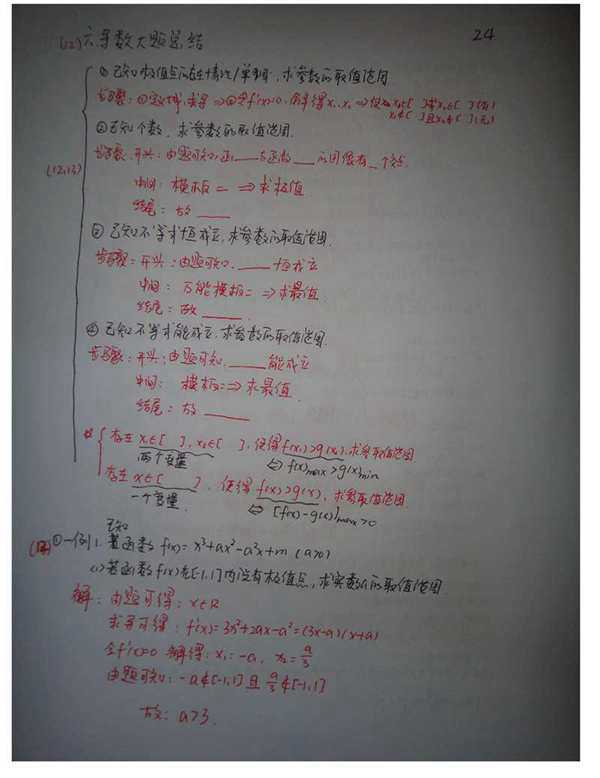 (12) 六、导数大题总结 24
① 已知极值点存在情况/单调, 求参数的取值范围.
步骤: ①定义域, 求导 ⇒ ②令f'(x)=0, 解得x₁, x₂ ⇒
② 已知个数, 求参数的取值范围.
步骤: 开头: 由题可知, 函____与函数____的图像有_个交点.
(12,13)
中间: 模板二 ⇒ 求极值
结尾: 故____
③ 已知不等式恒成立, 求参数的取值范围.
步骤: 开头: 由题可知, ____恒成立
中间: 万能模板二 ⇒ 求最值.
结尾: 故____.
④ 已知不等式能成立, 求参数的取值范围.
步骤: 开头: 由题可知, ____能成立
中间: 模板二 ⇒ 求最值.
结尾: 故____
存在x₁∈[ ], x₂∈[ ], 使得f(x₁)>g(x₂), 求参取值范围
两个变量 ⇔ f(x)max>g(x)min
存在x∈[ ], 使得f(x)>g(x), 求参取值范围.
一个变量. ⇔ [f(x)-g(x)]max>0
已知
①一例1. 函数f(x)=x³+ax²-a²x+m (a>0)
(1) 若函数f(x)在[-1,1]内没有极值点, 求实数a的取值范围.
解: 由题可得: x∈R
求导可得: f'(x)=3x²+2ax-a²=(3x-a)(x+a)
令f'(x)=0 解得: x₁=-a, x₂=a/3
由题可知: -a∉[-1,1]且a/3∉[-1,1]
故: a>3.